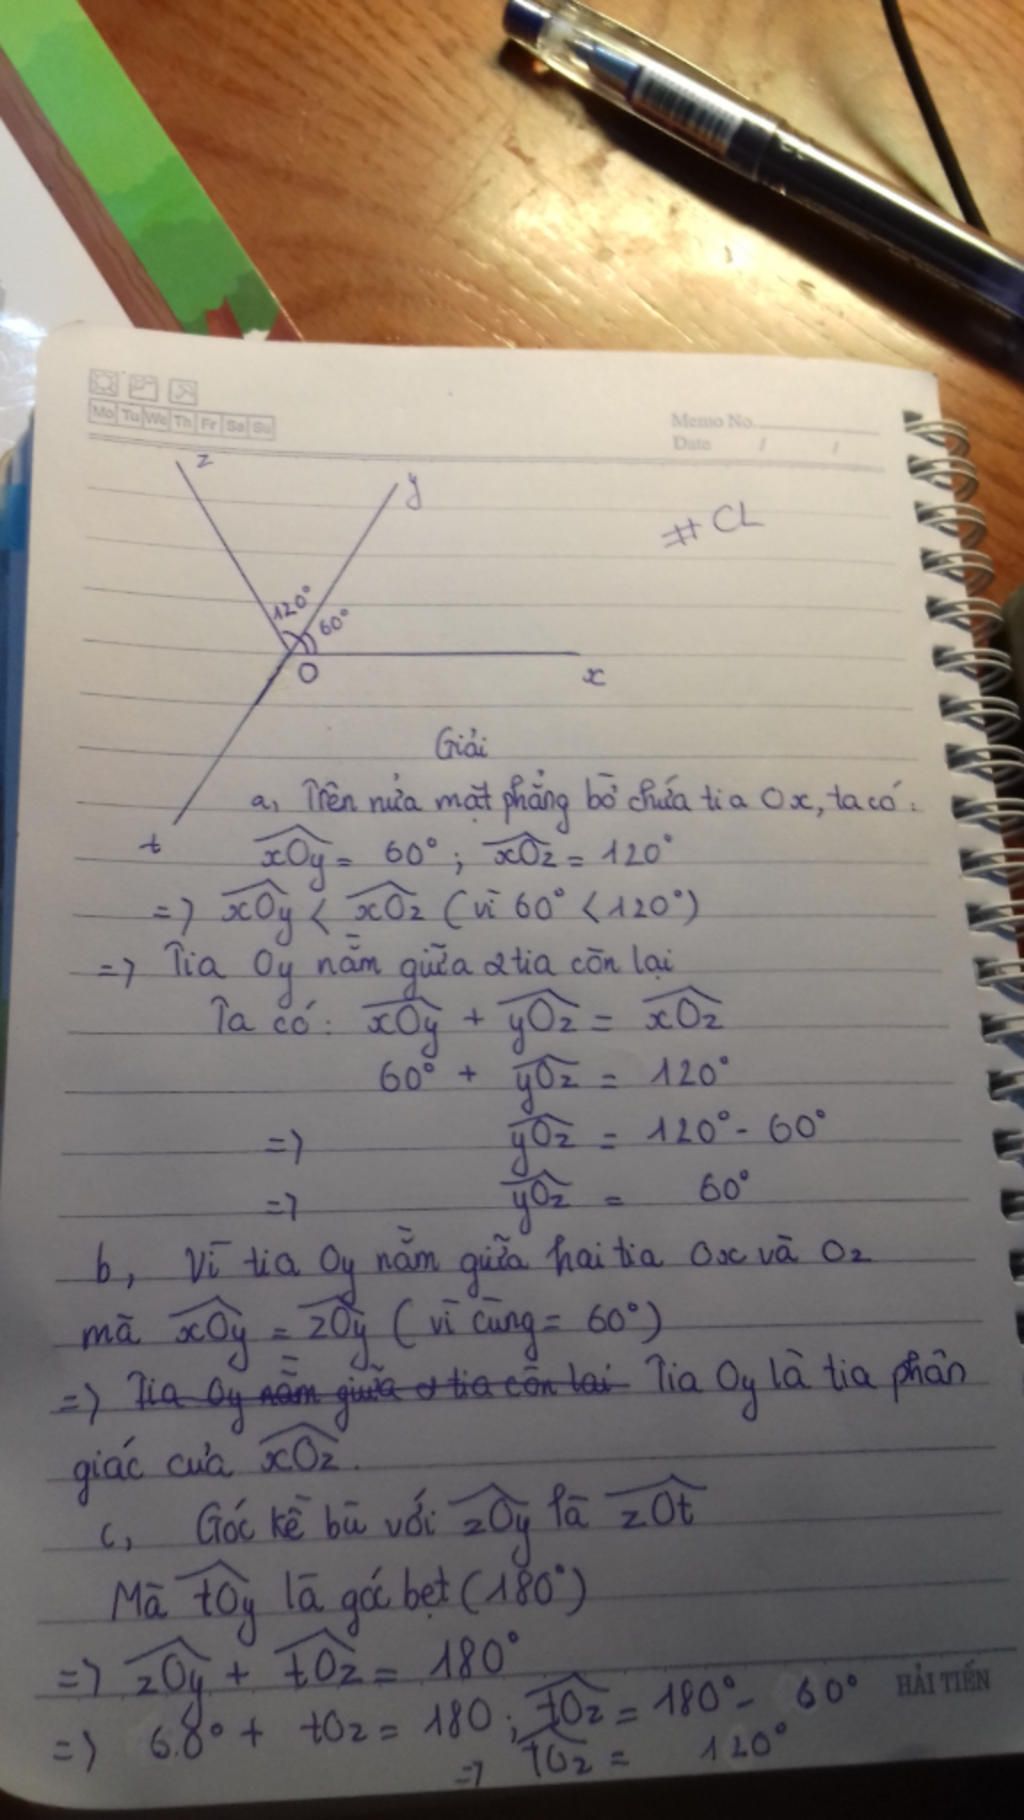 Mo Tu We Th Fr Sa Su
Memo No.
Date / /
z
y
# CL
120°
60°
O
x
Giải
a, Trên nửa mặt phẳng bờ chứa tia Ox, ta có:
t
xOy = 60° ; xOz = 120°
=> xOy < xOz (vì 60° < 120°)
=> Tia Oy nằm giữa 2 tia còn lại
Ta có: xOy + yOz = xOz
60° + yOz = 120°
=> yOz = 120° - 60°
=> yOz = 60°
b, Vì tia Oy nằm giữa hai tia Ox và Oz
mà xOy = zOy (vì cùng = 60°)
=> Tia Oy nằm giữa 2 tia còn lại Tia Oy là tia phân
giác của xOz.
c, Góc kề bù với zOy là zOt
Mà tOy là góc bẹt (180°)
=> zOy + tOz = 180°
HẢI TIẾN
=> 60° + tOz = 180 ; tOz = 180° - 60°
=> tOz = 120°